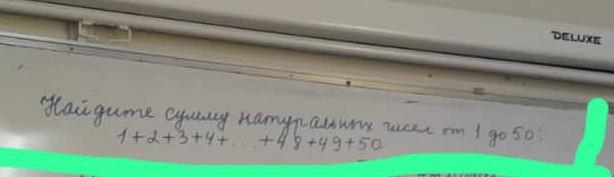 DELUXE
Найдите сумму натуральных чисел от 1 до 50:
1+2+3+4+...+48+49+50